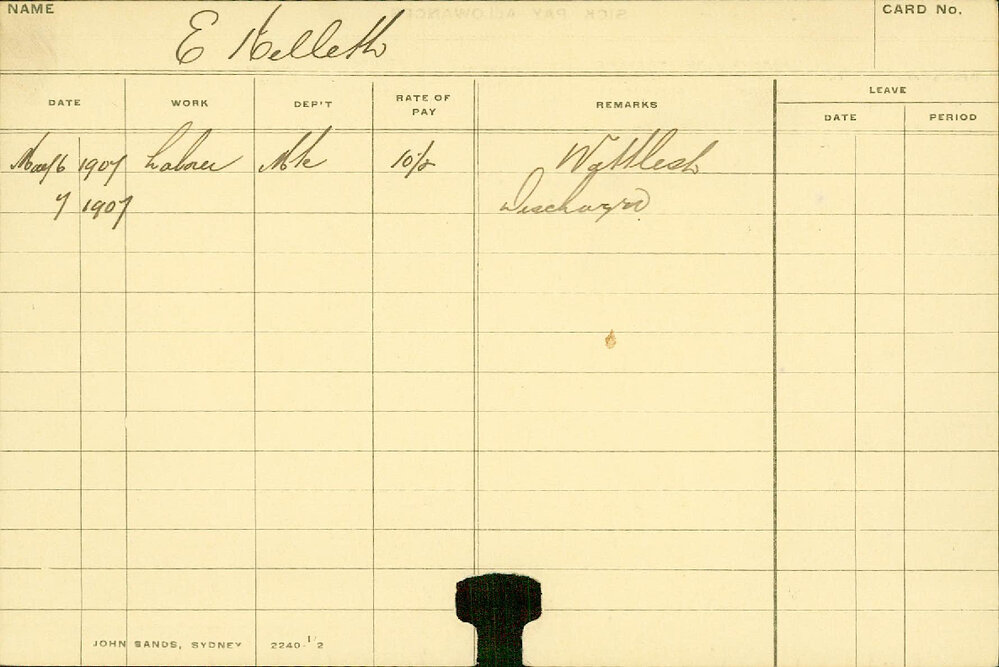 NAME E Kelleth CARD No.
DATE WORK DEP'T RATE OF PAY REMARKS LEAVE
DATE PERIOD
May 6 1907 Labour 10/2
7 1907 Discharged
JOHN SANDS, SYDNEY 2240-1/2